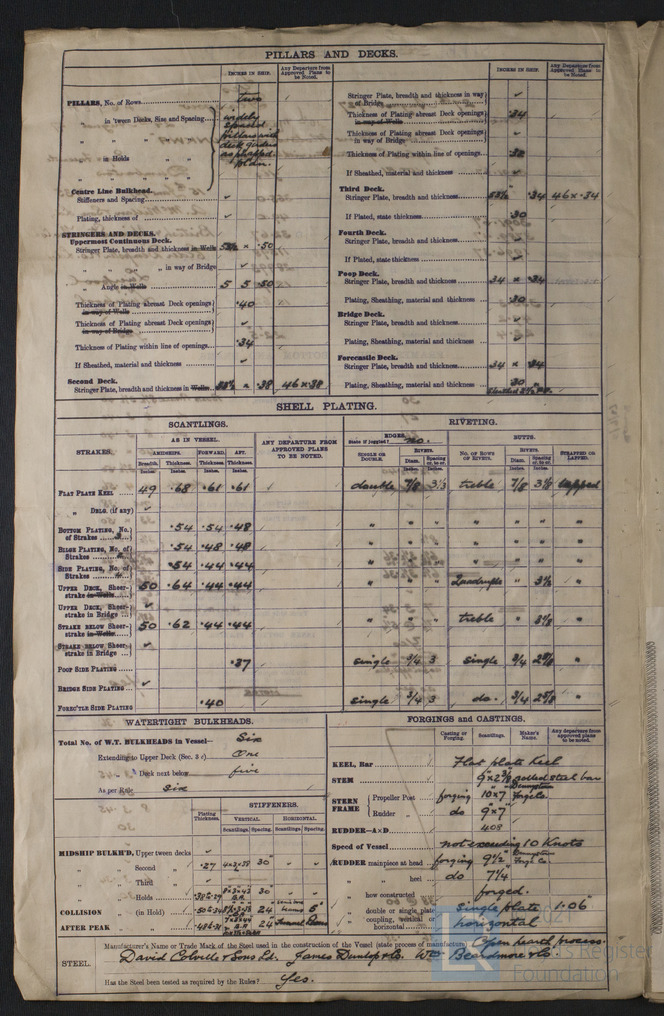 PILLARS AND DECKS.
INCHES IN SHIP.
Any Departure from Approved Plans to be Noted.
PILLARS, No. of Rows
Two
" in 'tween Decks, Size and Spacing
widely spaced pillars with deck girders
" in Holds " "
Centre Line Bulkhead.
Stiffeners and Spacing
Plating, thickness of
STRINGERS AND DECKS.
Uppermost Continuous Deck.
Stringer Plate, breadth and thickness in Wells × .50
" " " in way of Bridge
" Angle in Wells 5 5 .50
Thickness of Plating abreast Deck openings in way of Wells .40
Thickness of Plating abreast Deck openings in way of Bridge
Thickness of Plating within line of openings .34
If Sheathed, material and thickness
Second Deck.
Stringer Plate, breadth and thickness in Wells × .38 46 × .38
INCHES IN SHIP.
Any Departure from Approved Plans to be Noted.
Stringer Plate, breadth and thickness in way of Bridge
Thickness of Plating abreast Deck openings in way of Wells .34
Thickness of Plating abreast Deck openings in way of Bridge
Thickness of Plating within line of openings .32
If Sheathed, material and thickness
Third Deck.
Stringer Plate, breadth and thickness .34 46 × .34
If Plated, state thickness .30
Fourth Deck.
Stringer Plate, breadth and thickness
If Plated, state thickness
Poop Deck.
Stringer Plate, breadth and thickness 34 × .34
Plating, Sheathing, material and thickness .30
Bridge Deck.
Stringer Plate, breadth and thickness
Plating, Sheathing, material and thickness
Forecastle Deck.
Stringer Plate, breadth and thickness 34 × .34
Plating, Sheathing, material and thickness .30
Sheathed 2½ P.P.
SHELL PLATING.
SCANTLINGS.
RIVETING.
STRAKES.
AS IN VESSEL.
AMIDSHIPS. FORWARD. AFT.
Breadth. Thickness. Thickness. Thickness.
Inches Inches Inches Inches
ANY DEPARTURE FROM APPROVED PLANS TO BE NOTED.
EDGES.
State if joggled? no.
SINGLE OR DOUBLE.
RIVETS.
Diam. Spacing cr. to cr.
BUTTS.
NO. OF ROWS OF RIVETS.
RIVETS.
Diam. Spacing cr. to cr.
STRAPPED OR LAPPED.
FLAT PLATE KEEL 49 .68 .61 .61 double 7/8 treble 7/8 3⅛ lapped
" DBLG. (if any)
BOTTOM PLATING, No. of Strakes .54 .54 .48 " " " " " " "
BILGE PLATING, No. of Strakes .54 .48 .48 " " " " " " "
SIDE PLATING, No. of Strakes 4 .54 .44 .44
UPPER DECK, Sheerstrake in Wells 50 .64 .44 .44 " " " Quadruple " "
UPPER DECK, Sheerstrake in Bridge
STRAKE BELOW Sheerstrake in Wells 50 .62 .44 .44 " " " treble " "
STRAKE BELOW Sheerstrake in Bridge
POOP SIDE PLATING .37 single 3/4 3 single 3/4 2⅝ "
BRIDGE SIDE PLATING
FORECSTLE SIDE PLATING .40 single 3/4 3 do. 3/4 2⅝ "
WATERTIGHT BULKHEADS.
Total No. of W.T. BULKHEADS in Vessel— Six
Extending to Upper Deck (Sec. 3 c) One
" Deck next below five
As per Rule Six
Plating Thickness.
STIFFENERS.
VERTICAL. HORIZONTAL.
Scantlings. Spacing. Scantlings. Spacing.
MIDSHIP BULKH'D, Upper tween decks
" " Second " .27 30"
" " Third "
" " Holds 30"
COLLISION " (in Hold) 24
AFTER PEAK " " 24 Tunnel
FORGINGS and CASTINGS.
Casting or Forging. Scantlings. Maker's Name. Any departure from approved plans to be noted.
KEEL, Bar Flat plate Keel
STEM rolled steel bar
STERN FRAME
Propeller Post forging 10 × 7
Rudder " do 9" × 7"
RUDDER—A×D 408
Speed of Vessel not exceeding 10 Knots
RUDDER mainpiece at head forging 9½"
" " heel do 7¼
" how constructed forged.
" double or single plate single plate 1.06"
" coupling, vertical or horizontal horizontal
STEEL.
Manufacturer's Name or Trade Mark of the Steel used in the construction of the Vessel (state process of manufacture) Open hearth process.
David Colville & Sons Ld. James Dunlop & Co. Wm Beardmore & Co
Has the Steel been tested as required by the Rules? Yes.
Lloyd's Register Foundation